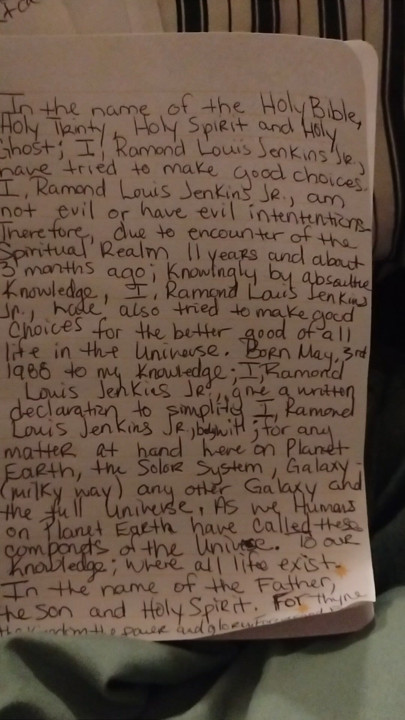 In the name of the Holy Bible,
Holy Trinty, Holy Spirit and Holy
Ghost; I, Ramond Louis Jenkins Jr.,
have tried to make good choices.
I, Ramond Louis Jenkins Jr., am
not evil or have evil intententions.
Therefore, due to encounter of the
Spiritual Realm 11 years and about
3 months ago; Knowingly by absolute
Knowledge, I, Ramond Louis Jenkins
Jr., have also tried to make good
Choices for the better good of all
life in the Universe. Born May, 3rd
1988 to my Knowledge; I, Ramond
Louis Jenkies Jr., give a written
declaration to simplify I, Ramond
Louis Jenkins Jr, ; for any
matter at hand here on Planet
Earth, the Solor System, Galaxy -
(milky way) any other Galaxy and
the full Universe, As we Humans
on Planet Earth have called these
componts of the Universe. To our
Knowledge; where all life exist.
In the name of the Father,
the Son and Holy Spirit. For thyne
the power and glory